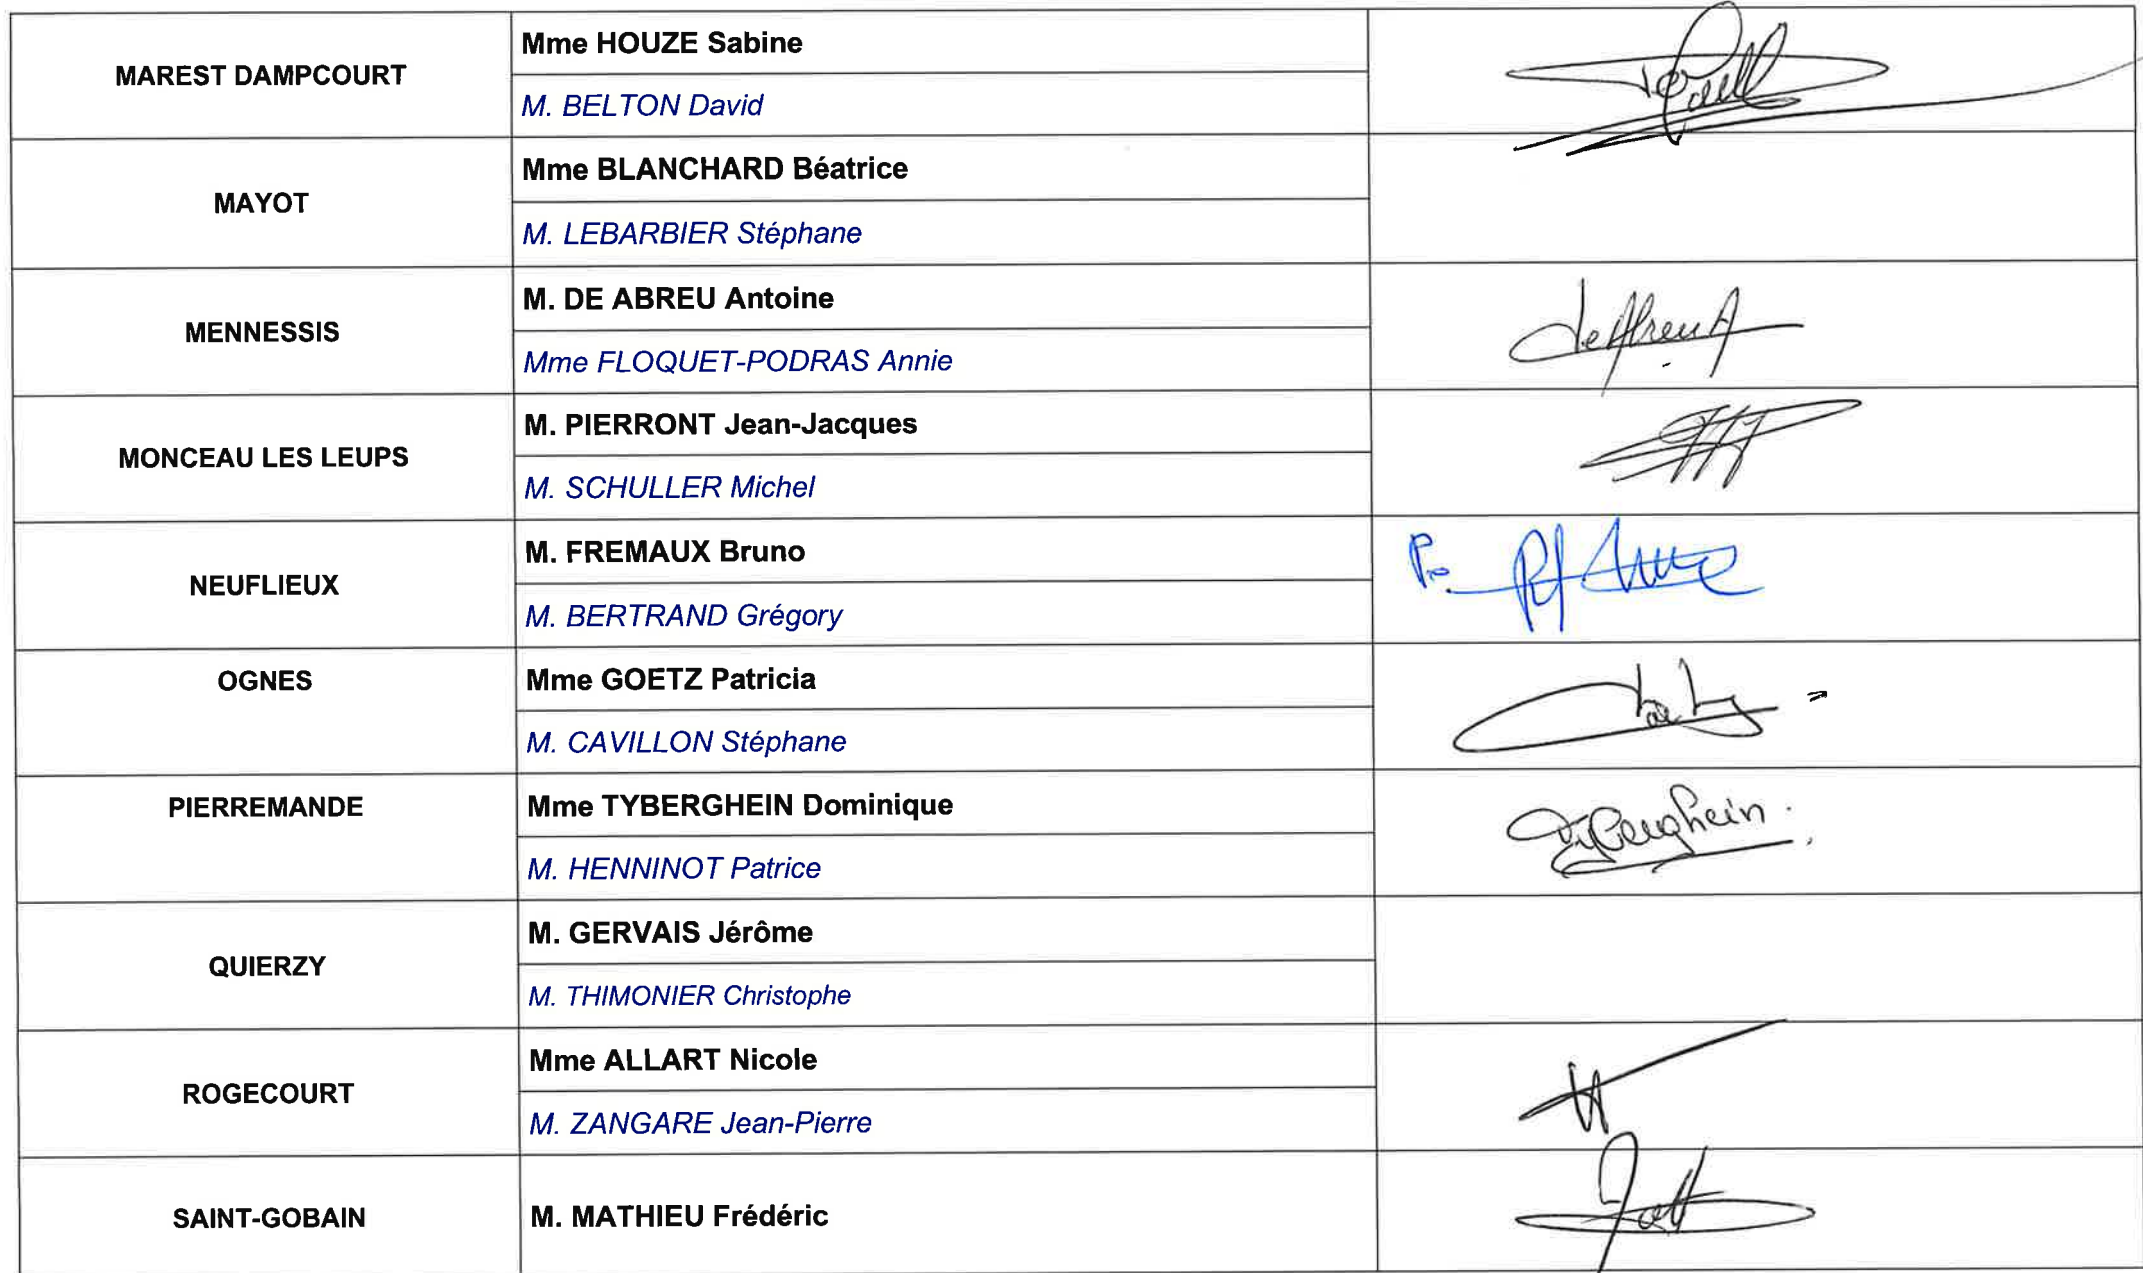 MAREST DAMPCOURT
Mme HOUZE Sabine
M. BELTON David
MAYOT
Mme BLANCHARD Béatrice
M. LEBARBIER Stéphane
MENNESSIS
M. DE ABREU Antoine
Mme FLOQUET-PODRAS Annie
De Abreu A
MONCEAU LES LEUPS
M. PIERRONT Jean-Jacques
M. SCHULLER Michel
NEUFLIEUX
M. FREMAUX Bruno
M. BERTRAND Grégory
OGNES
Mme GOETZ Patricia
M. CAVILLON Stéphane
PIERREMANDE
Mme TYBERGHEIN Dominique
M. HENNINOT Patrice
Tyberghein
QUIERZY
M. GERVAIS Jérôme
M. THIMONIER Christophe
ROGECOURT
Mme ALLART Nicole
M. ZANGARE Jean-Pierre
SAINT-GOBAIN
M. MATHIEU Frédéric